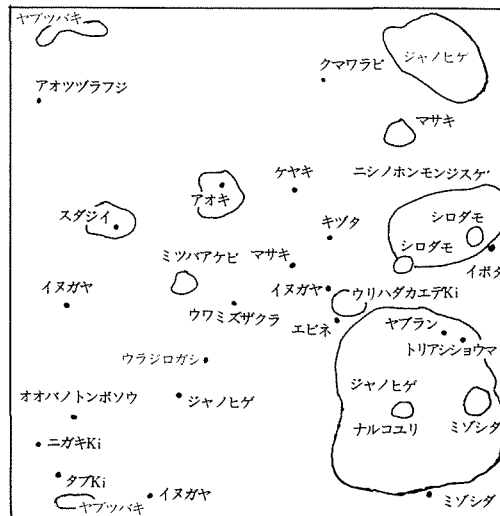 ヤブツバキ
ジャノヒゲ
クマワラビ
アオツヅラフジ
マサキ
ケヤキ
ニシノホンモンジスゲ
アオキ
スダジイ
シロダモ
キヅタ
シロダモ
ミツバアケビ
マサキ
イボタ
イヌガヤ
イヌガヤ
ウリハダカエデKi
ウワミズザクラ
エビネ
ヤブラン
トリアシショウマ
ウラジロガシ
ジャノヒゲ
オオバノトンボソウ
ジャノヒゲ
ナルコユリ
ミゾシダ
ニガキKi
タブKi
イヌガヤ
ヤブツバキ
ミゾシダ